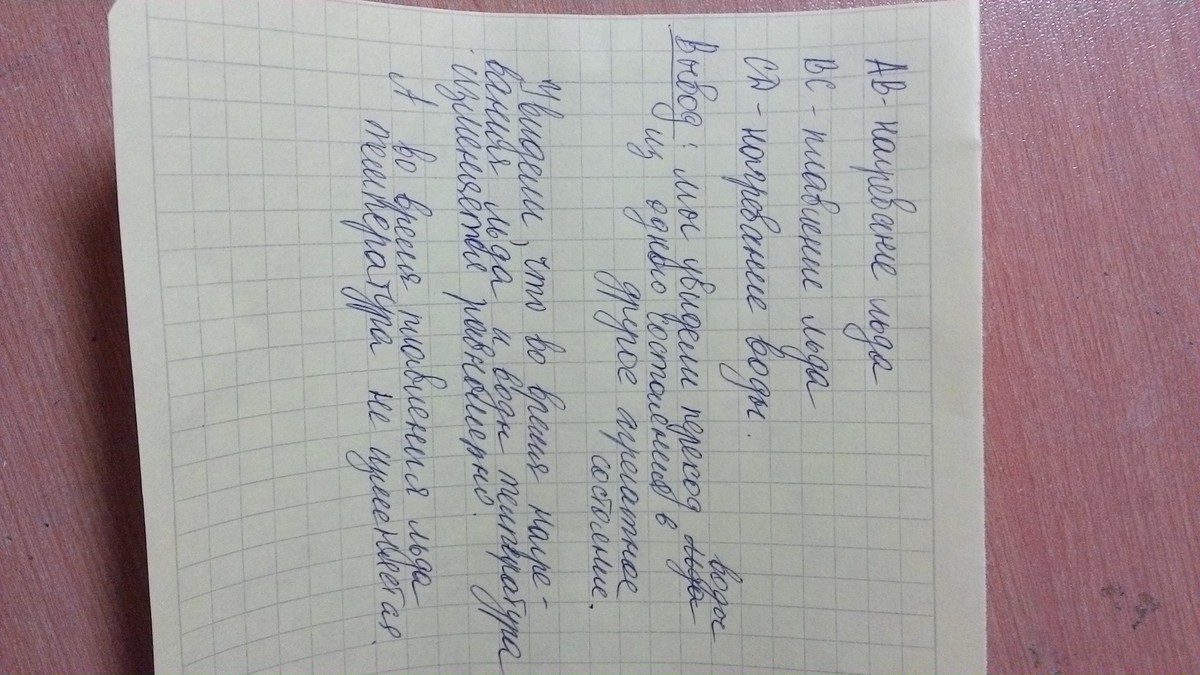 АВ - нагревание льда
ВС - плавление льда
СД - нагревание воды.
воды
Вывод: мы увидели переход льда
из одного состояния в
другое агрегатное
состояние.
Увидели, что во время нагре-
вания льда и воды температура
изменяется равномерно.
А во время плавления льда
температура не изменяется.